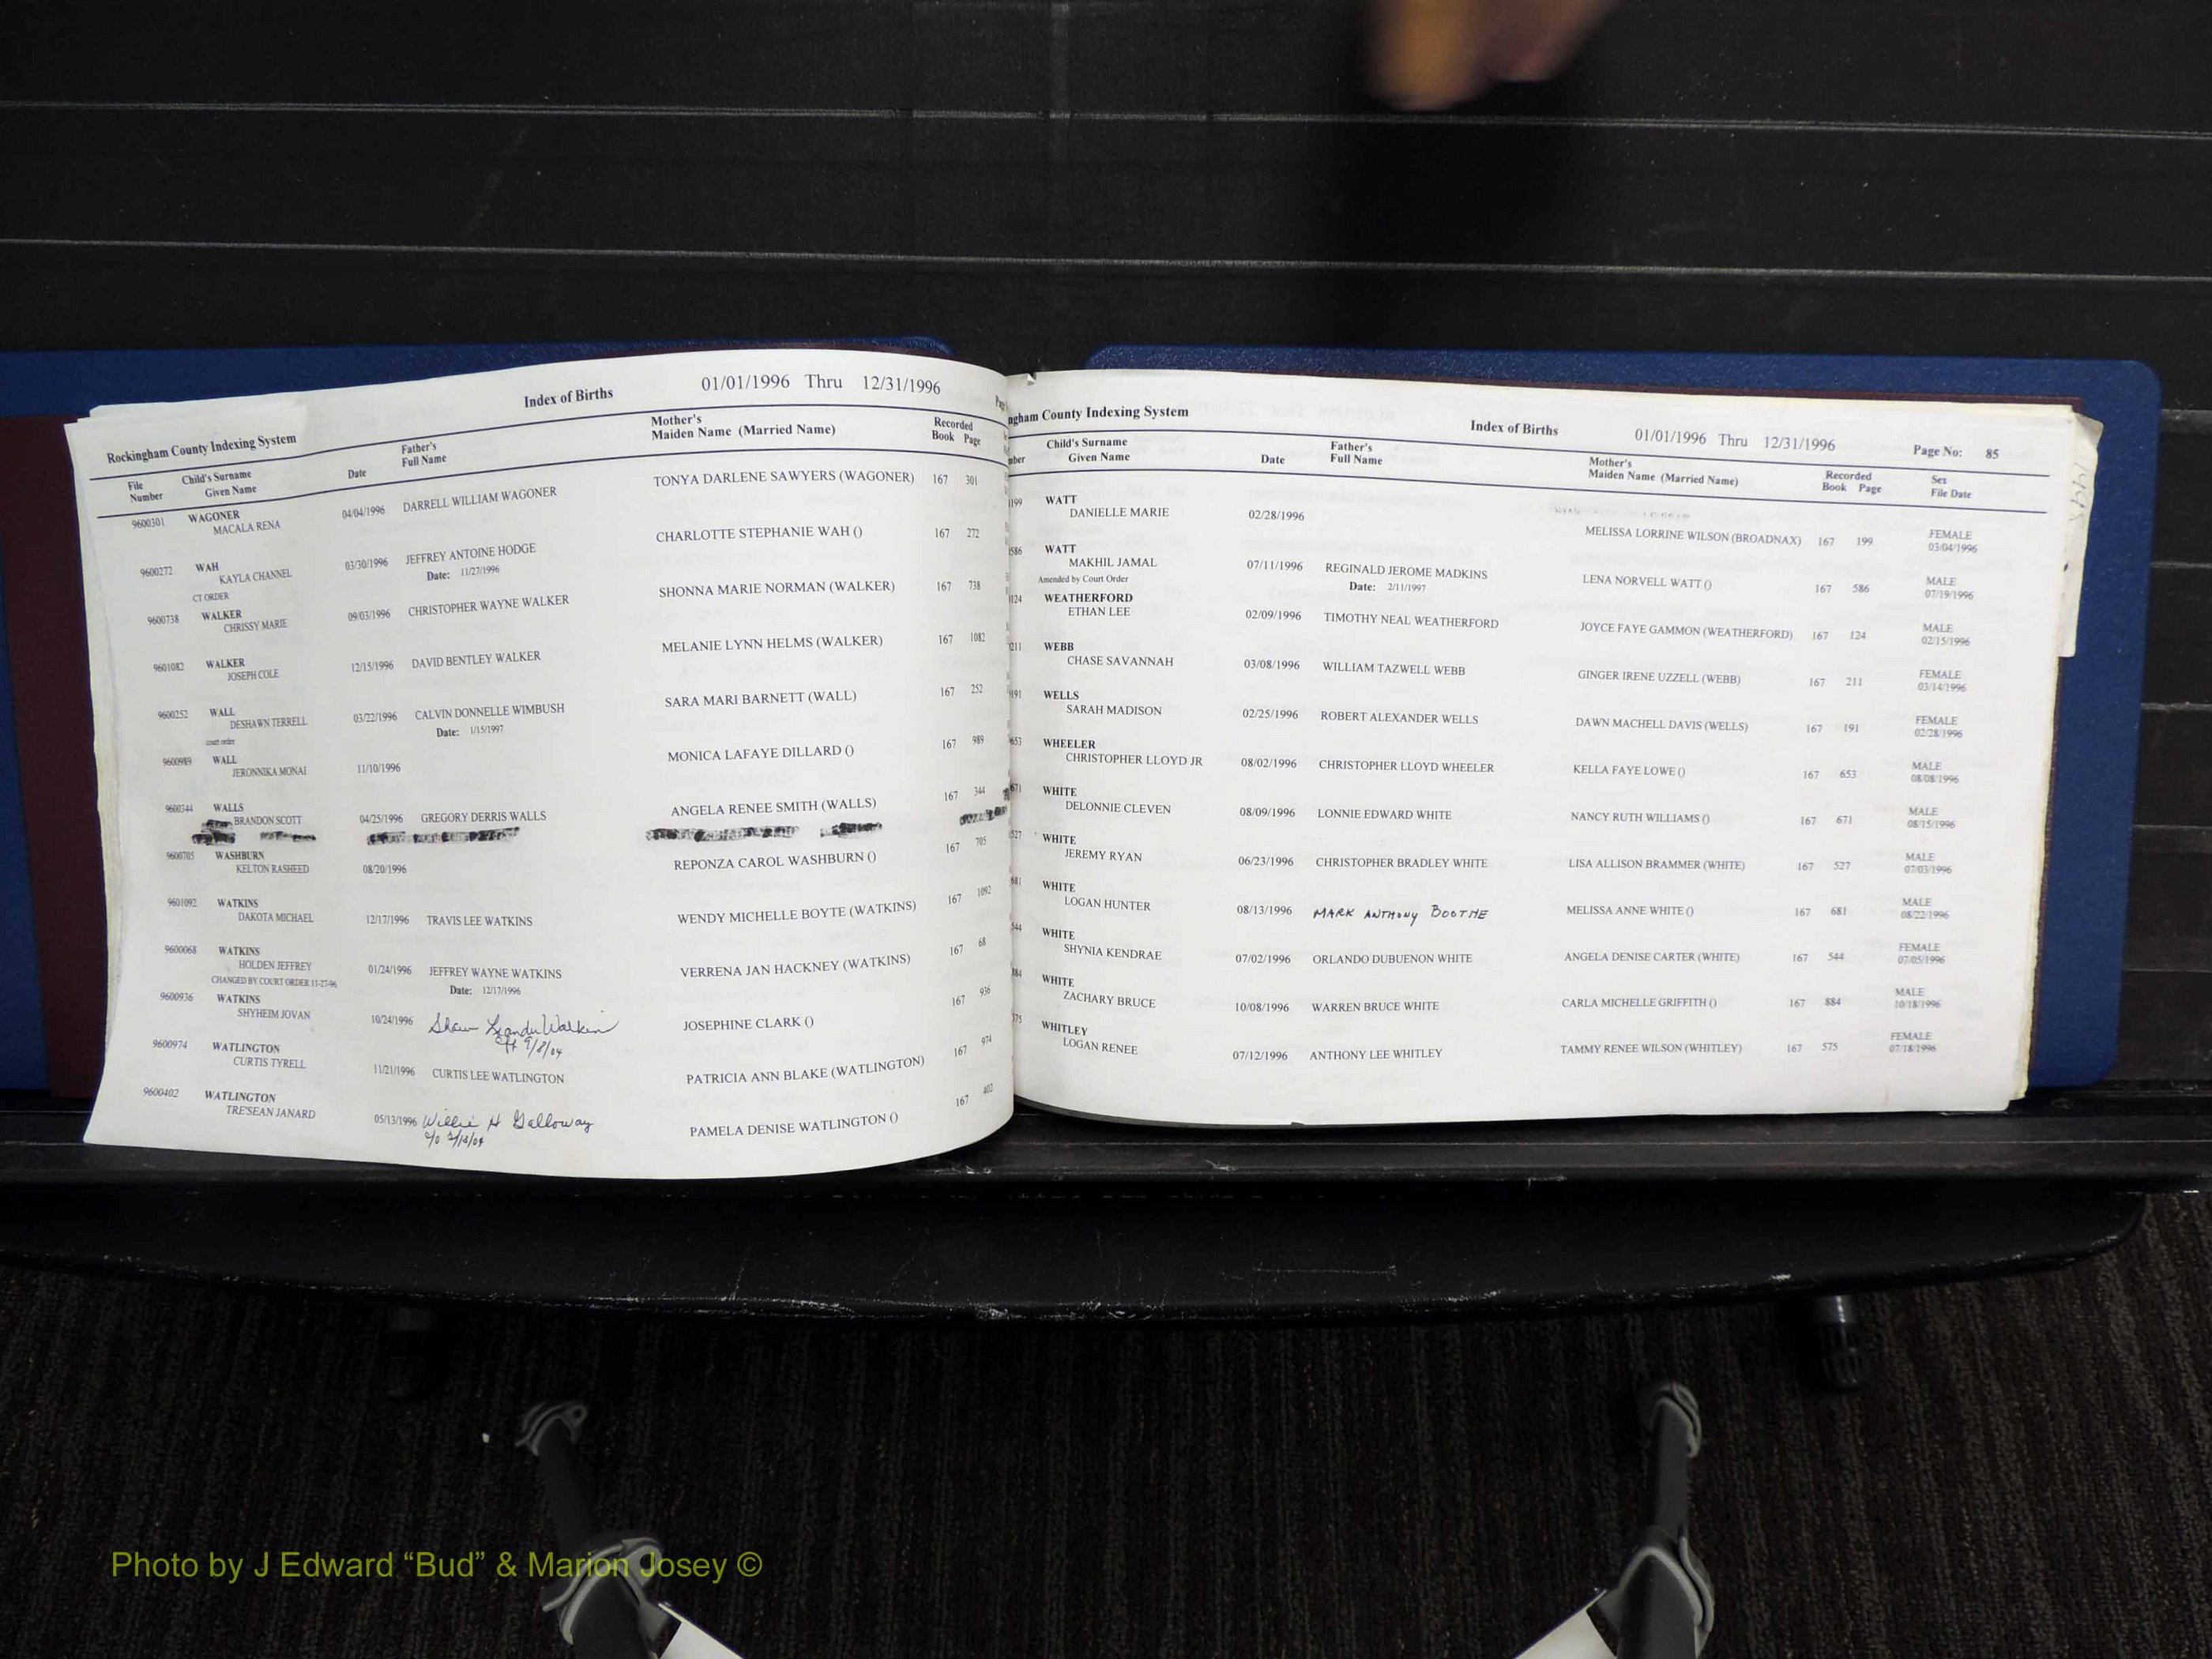 Index of Births 01/01/1996 Thru 12/31/1996
Rockingham County Indexing System
File Number Child's Surname Given Name Date Father's Full Name Mother's Maiden Name (Married Name) Recorded Book Page
9600301 WAGONER 04/04/1996 DARRELL WILLIAM WAGONER TONYA DARLENE SAWYERS (WAGONER) 167 301
MACALA RENA
9600272 WAH 03/30/1996 JEFFREY ANTOINE HODGE CHARLOTTE STEPHANIE WAH () 167 272
KAYLA CHANNEL Date: 11/27/1996
CT ORDER
9600738 WALKER 09/03/1996 CHRISTOPHER WAYNE WALKER SHONNA MARIE NORMAN (WALKER) 167 738
CHRISSY MARIE
9601082 WALKER 12/15/1996 DAVID BENTLEY WALKER MELANIE LYNN HELMS (WALKER) 167 1082
JOSEPH COLE
9600252 WALL 03/22/1996 CALVIN DONNELLE WIMBUSH SARA MARI BARNETT (WALL) 167 252
DESHAWN TERRELL Date: 1/15/1997
court order
9600989 WALL 11/10/1996 MONICA LAFAYE DILLARD () 167 989
JERONNIKA MONAI
9600344 WALLS 04/25/1996 GREGORY DERRIS WALLS ANGELA RENEE SMITH (WALLS) 167 344
BRANDON SCOTT
9600705 WASHBURN 08/20/1996 REPONZA CAROL WASHBURN () 167 705
KELTON RASHEED
9601092 WATKINS 12/17/1996 TRAVIS LEE WATKINS WENDY MICHELLE BOYTE (WATKINS) 167 1092
DAKOTA MICHAEL
9600068 WATKINS 01/24/1996 JEFFREY WAYNE WATKINS VERRENA JAN HACKNEY (WATKINS) 167 68
HOLDEN JEFFREY Date: 12/17/1996
CHANGED BY COURT ORDER 11-27-96
9600936 WATKINS 10/24/1996 JOSEPHINE CLARK () 167 936
SHYHEIM JOVAN 9/8/04
9600974 WATLINGTON 11/21/1996 CURTIS LEE WATLINGTON PATRICIA ANN BLAKE (WATLINGTON) 167 974
CURTIS TYRELL
9600402 WATLINGTON 05/13/1996 Willie H Galloway PAMELA DENISE WATLINGTON () 167 402
TRE'SEAN JANARD
ngham County Indexing System Index of Births 01/01/1996 Thru 12/31/1996 Page No: 85
mber Child's Surname Given Name Date Father's Full Name Mother's Maiden Name (Married Name) Recorded Book Page Sex File Date
199 WATT 02/28/1996 MELISSA LORRINE WILSON (BROADNAX) 167 199 FEMALE
DANIELLE MARIE 03/04/1996
586 WATT 07/11/1996 REGINALD JEROME MADKINS LENA NORVELL WATT () 167 586 MALE
MAKHIL JAMAL Date: 2/11/1997 07/19/1996
Amended by Court Order
124 WEATHERFORD 02/09/1996 TIMOTHY NEAL WEATHERFORD JOYCE FAYE GAMMON (WEATHERFORD) 167 124 MALE
ETHAN LEE 02/15/1996
211 WEBB 03/08/1996 WILLIAM TAZWELL WEBB GINGER IRENE UZZELL (WEBB) 167 211 FEMALE
CHASE SAVANNAH 03/14/1996
191 WELLS 02/25/1996 ROBERT ALEXANDER WELLS DAWN MACHELL DAVIS (WELLS) 167 191 FEMALE
SARAH MADISON 02/28/1996
653 WHEELER 08/02/1996 CHRISTOPHER LLOYD WHEELER KELLA FAYE LOWE () 167 653 MALE
CHRISTOPHER LLOYD JR 08/08/1996
671 WHITE 08/09/1996 LONNIE EDWARD WHITE NANCY RUTH WILLIAMS () 167 671 MALE
DELONNIE CLEVEN 08/15/1996
527 WHITE 06/23/1996 CHRISTOPHER BRADLEY WHITE LISA ALLISON BRAMMER (WHITE) 167 527 MALE
JEREMY RYAN 07/03/1996
681 WHITE 08/13/1996 MARK ANTHONY BOOTHE MELISSA ANNE WHITE () 167 681 MALE
LOGAN HUNTER 08/22/1996
544 WHITE 07/02/1996 ORLANDO DUBUENON WHITE ANGELA DENISE CARTER (WHITE) 167 544 FEMALE
SHYNIA KENDRAE 07/05/1996
884 WHITE 10/08/1996 WARREN BRUCE WHITE CARLA MICHELLE GRIFFITH () 167 884 MALE
ZACHARY BRUCE 10/18/1996
575 WHITLEY 07/12/1996 ANTHONY LEE WHITLEY TAMMY RENEE WILSON (WHITLEY) 167 575 FEMALE
LOGAN RENEE 07/18/1996
Photo by J Edward “Bud” & Marion Josey ©